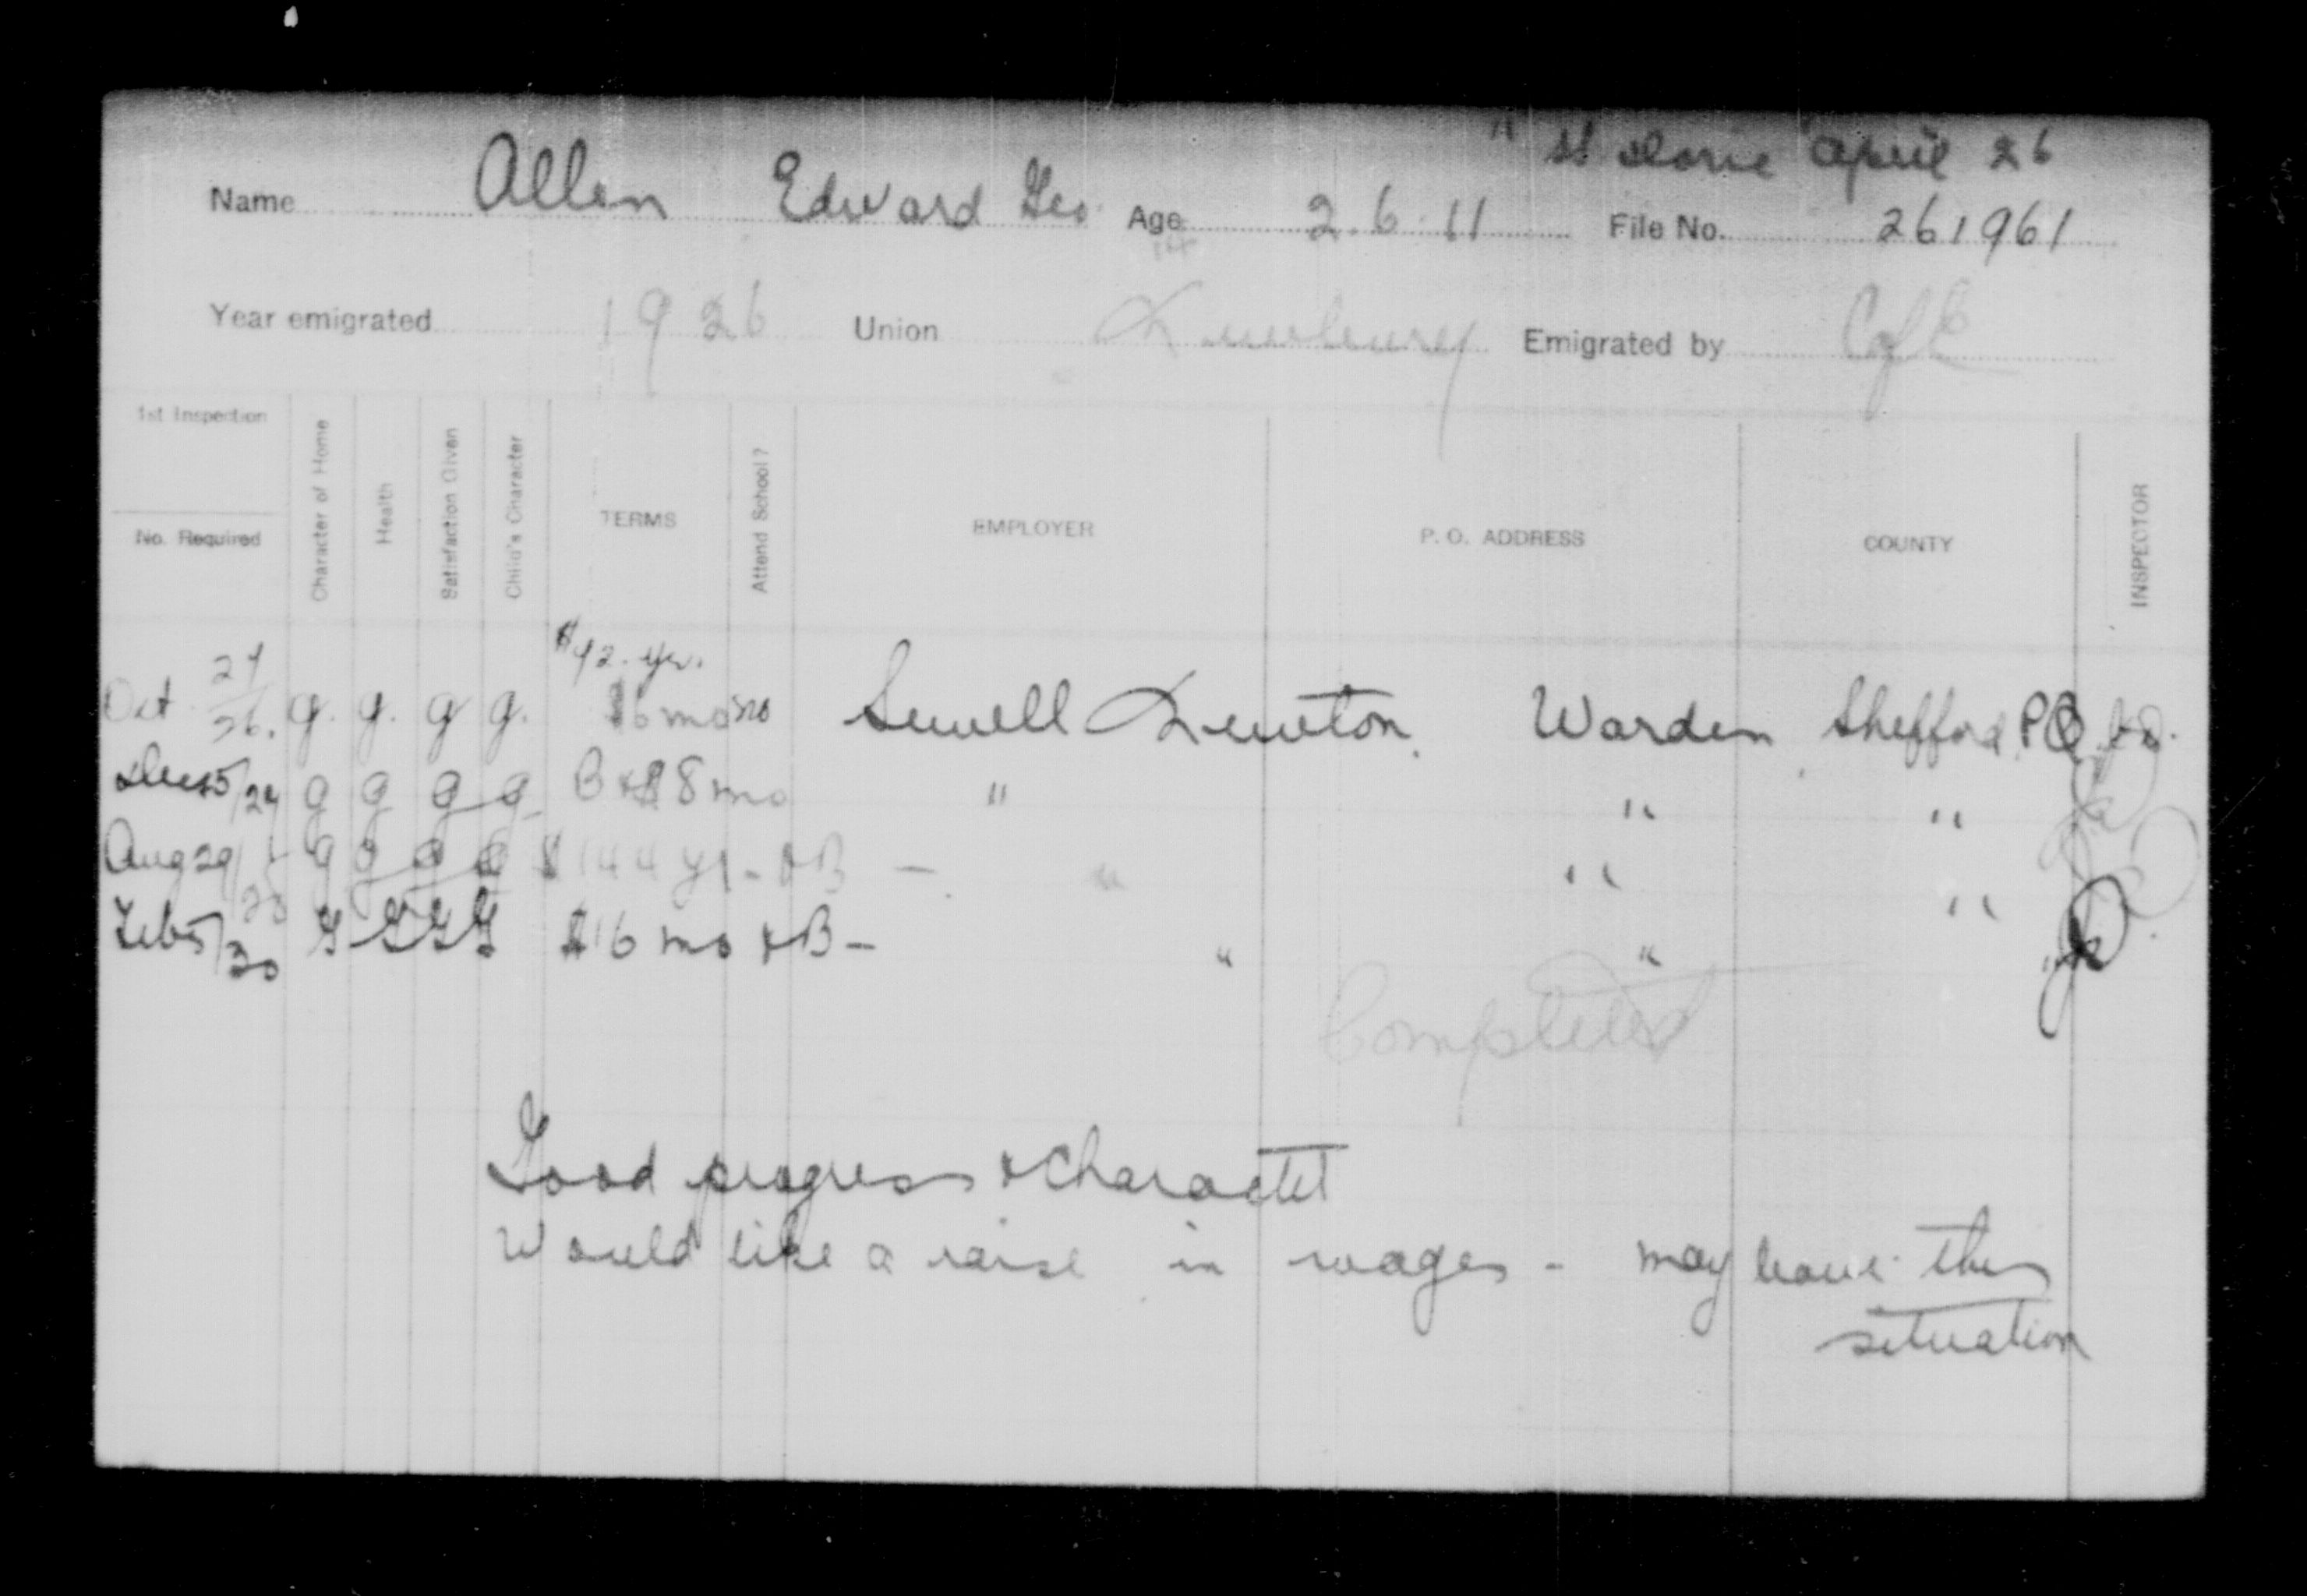 " St Dorie April 26
Name Allen Edward Geo. Age 2.6.11 File No. 261961
14
Year emigrated 1926 Union Newbury Emigrated by C of E
1st Inspection
No. Required
Character of Home
Health
Satisfaction Given
Child's Character
TERMS
Attend School?
EMPLOYER
P. O. ADDRESS
COUNTY
INSPECTOR
$72. yr.
Oct 27/26. g. g. g g. 6 mo no Sewell Newton. Warden, Shefford, P.Q.
Dec 15/27 g g g g B & $8 mo " " "
Aug 29/28 g g g g $144 yr. & B — " " "
Feb 5/30 G G G G $16 mo & B — " " "
Completed
Good progress & Character
Would like a raise in wages - may leave this
situation